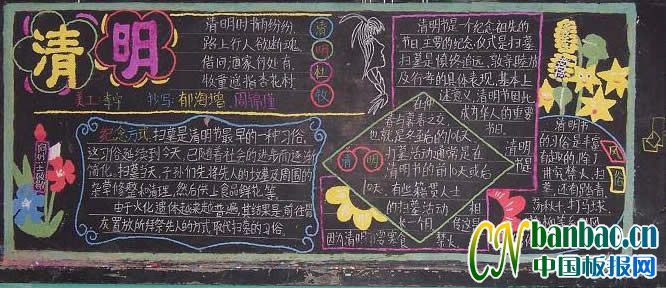 清明
清明时节雨纷纷
路上行人欲断魂
借问酒家何处有
牧童遥指杏花村
清
明
杜
牧
美工:李宁 抄写:郁海增
纪念方式 扫墓是清明节最早的一种习俗,
这习俗延续到今天,已随着社会的进步而逐渐
简化。扫墓当天,子孙们先将先人的坟墓及周围的
杂草修整和清理,然后供上食品鲜花等。
由于火化遗体越来越普遍,其结果是前往骨
灰置放所拜祭先人的方式取代扫墓的习俗。
清明节是一个纪念祖先的
节日,主要的纪念仪式是扫墓,
扫墓是慎终追远、敦亲睦族
及行孝的具体表现。基本上
述意义,清明节因此
成为华人的重要
节日。
清明节
在仲
春与暮春之交,
也就是冬至后的106天
扫墓活动通常是在
清明节的前10天或后
10天。有些籍贯人士
的扫墓活动
清明
清明节
的习俗是丰富
有趣的,除了
讲究禁火、扫
墓,还有踏青、
荡秋千、打马球
风
俗
因为清明节寒食
禁火
CNbanbao.cn
中国板报网